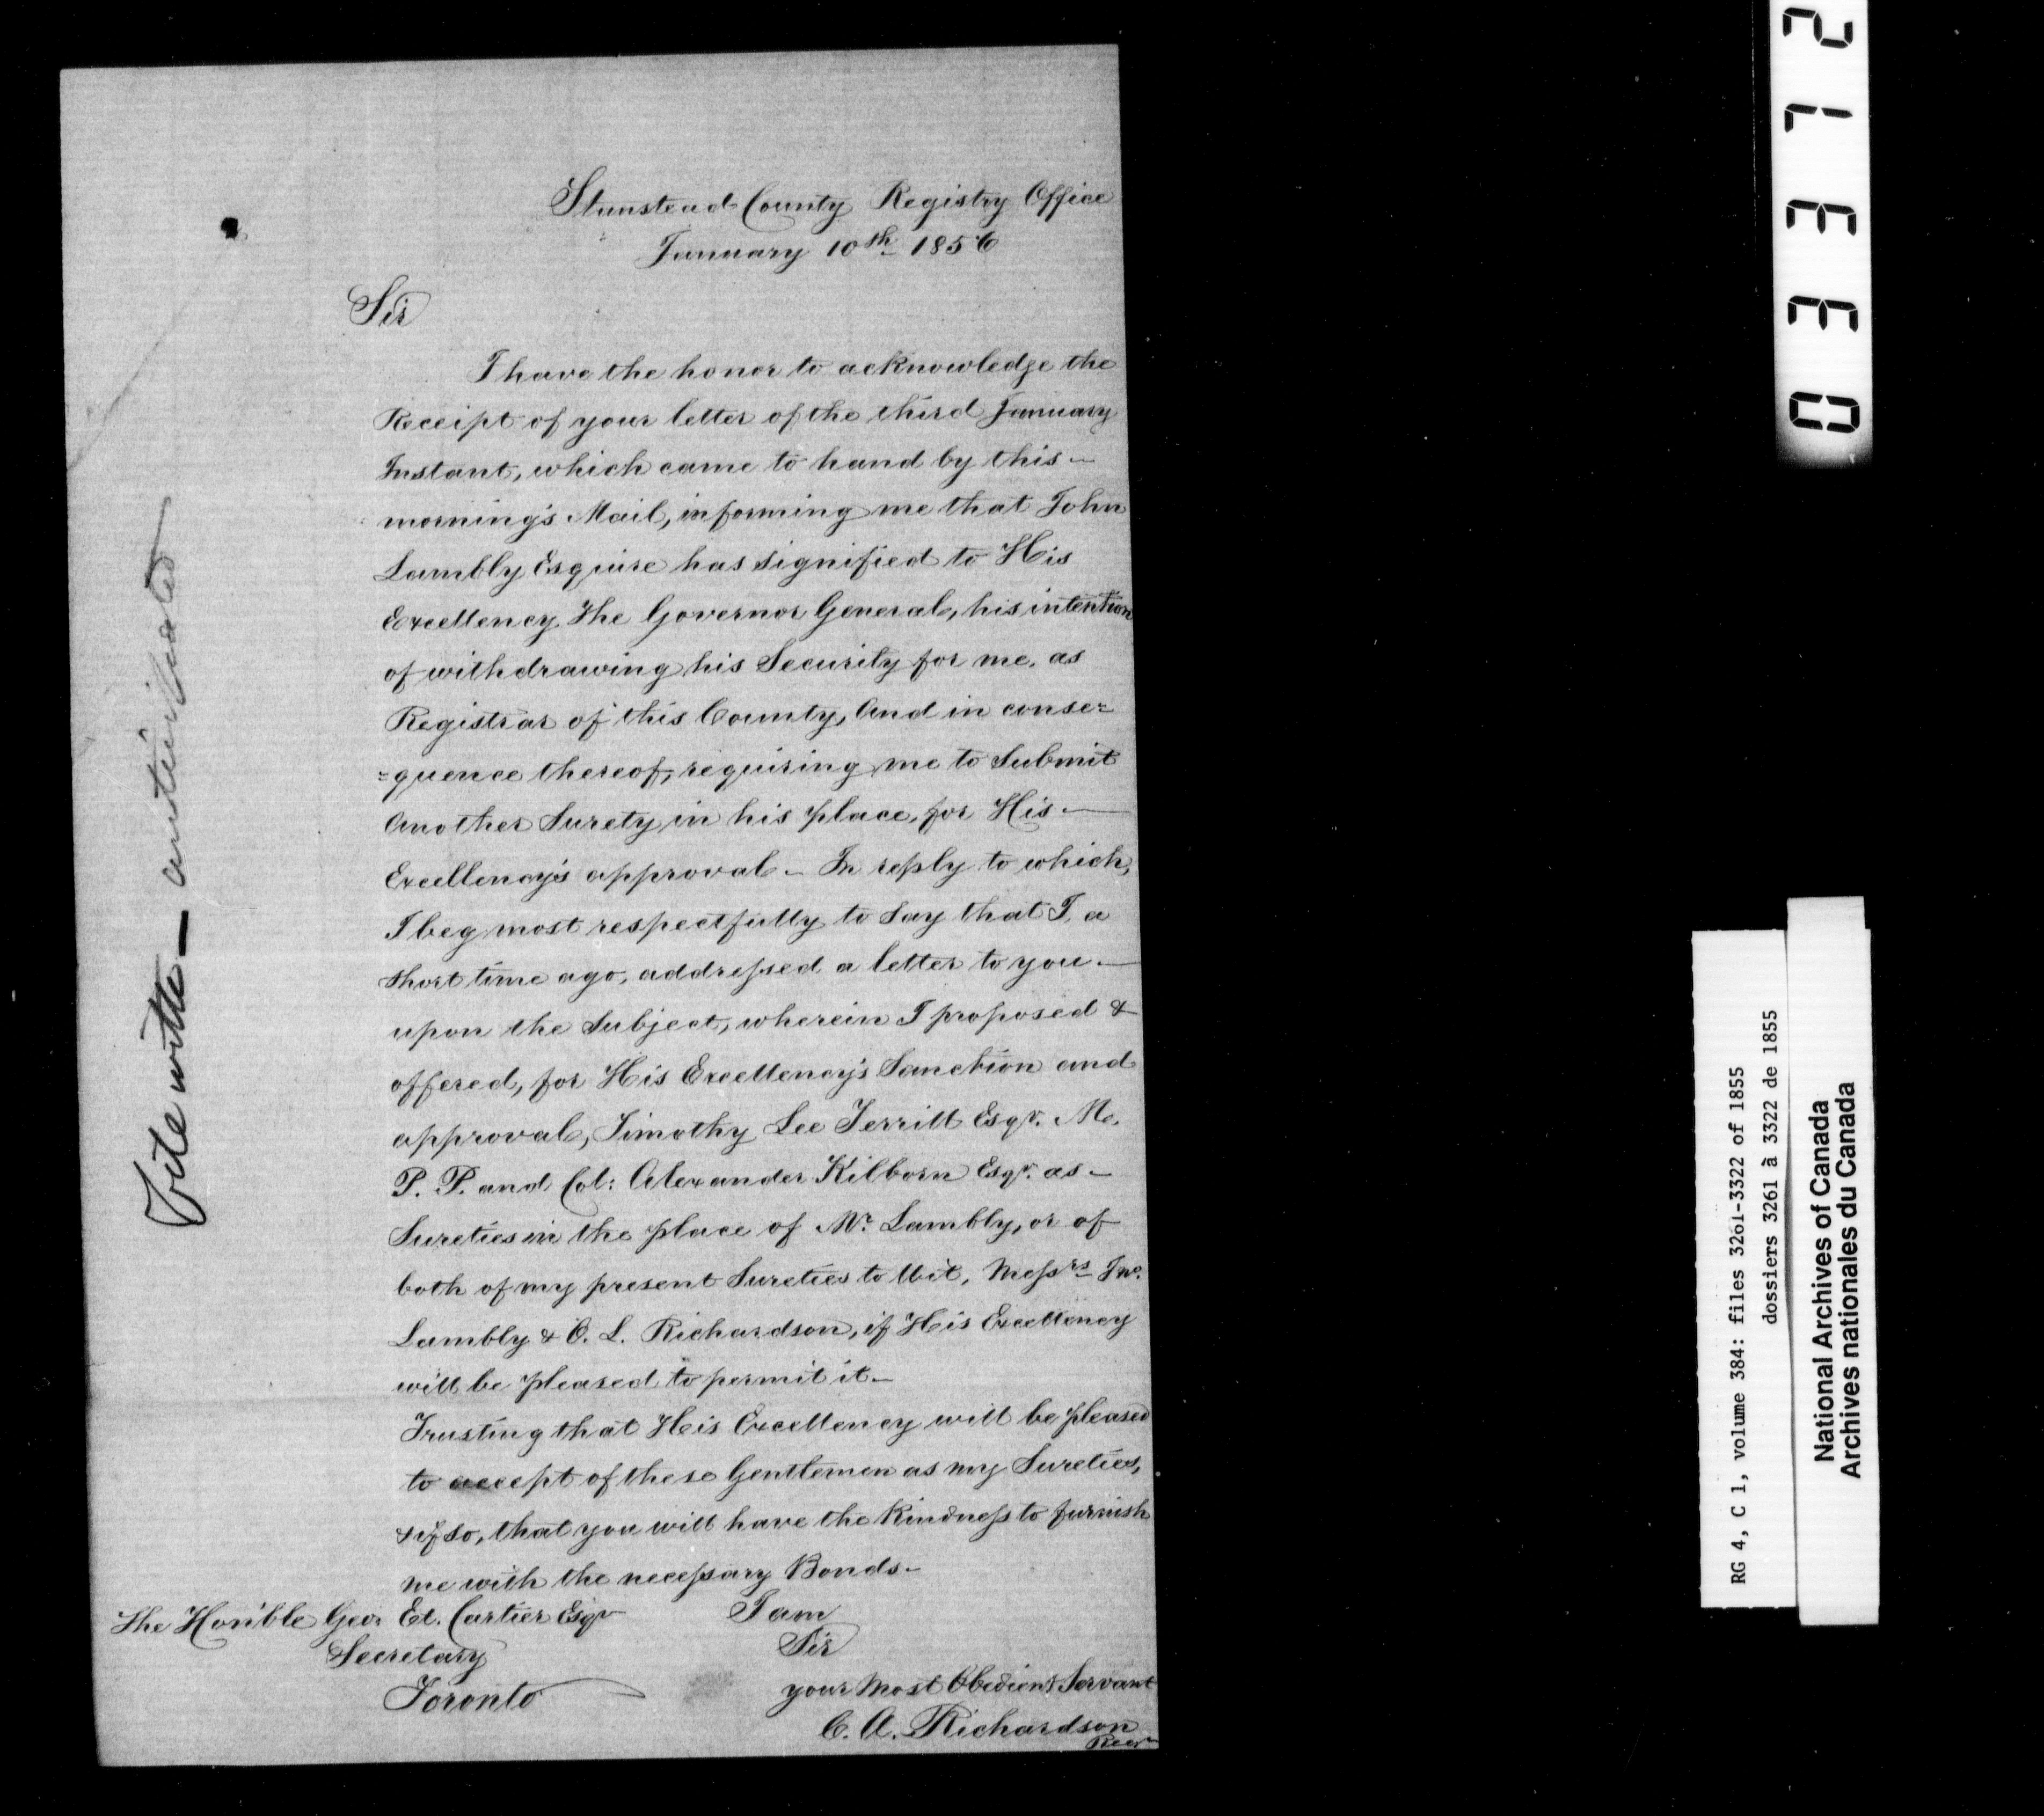 Stanstead County Registry Office
January 10th 1856
Sir
I have the honor to acknowledge the
Receipt of your letter of the third January
Instant, which came to hand by this —
morning's Mail, informing me that John
Lambly Esquire has signified to His
Excellency The Governor General, his intention
of withdrawing his Security for me, as
Registrar of this County, And in conse=
=quence thereof, requiring me to Submit
Another Surety in his place, for His —
Excellency's approval — In reply to which,
I beg most respectfully to say that I, a
short time ago, addressed a letter to you —
upon the Subject, wherein I proposed &
offered, for His Excellency's Sanction and
approval, Timothy Lee Terrill Esqr. M.
P. P. and Col: Alexander Kilborn Esqr. as —
Sureties in the place of Mr. Lambly, or of
both of my present Sureties to Wit, Messrs Jno.
Lambly & C. L. Richardson, if His Excellency
will be pleased to permit it —
Trusting that His Excellency will be pleased
to accept of these Gentlemen as my Sureties,
& if so, that you will have the Kindness to furnish
me with the necessary Bonds —
I am
Sir
your Most Obedient Servant
C. A. Richardson
Regr
The Hon'ble Geo. Et. Cartier Esqr
Secretary
Toronto
File with —
03312
RG 4, C 1, volume 384: files 3261-3322 of 1855
dossiers 3261 à 3322 de 1855
National Archives of Canada
Archives nationales du Canada